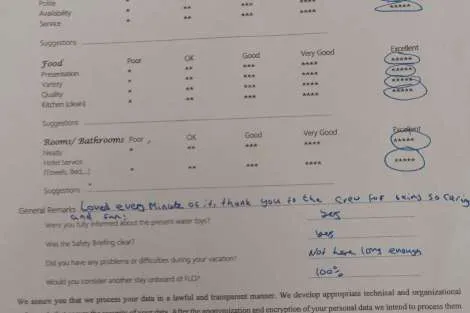 Polite * ** *** ****
Availability * ** *** **** *****
Service * ** *** ****
Suggestions
Food Poor OK Good Very Good Excellent
Presentation * ** *** **** *****
Variety * ** *** **** *****
Quality * ** *** **** *****
Kitchen (clean) * ** *** **** *****
Suggestions
Rooms/ Bathrooms Poor OK Good Very Good Excellent
Ready * ** *** **** *****
Hotel Service
(Towels, Bed,...) * ** *** **** *****
Suggestions
General Remarks Loved every Minute of it, thank you to the Crew for being so caring
and fun!
Were you fully informed about the present water toys? yes
Was the Safety Briefing clear? yes
Did you have any problems or difficulties during your vacation? Not here long enough
Would you consider another stay onboard of FLO? 100%
We assure you that we process your data in a lawful and transparent manner. We develop appropriate technical and organizational
After the anonymization and encryption of your personal data we intend to process them